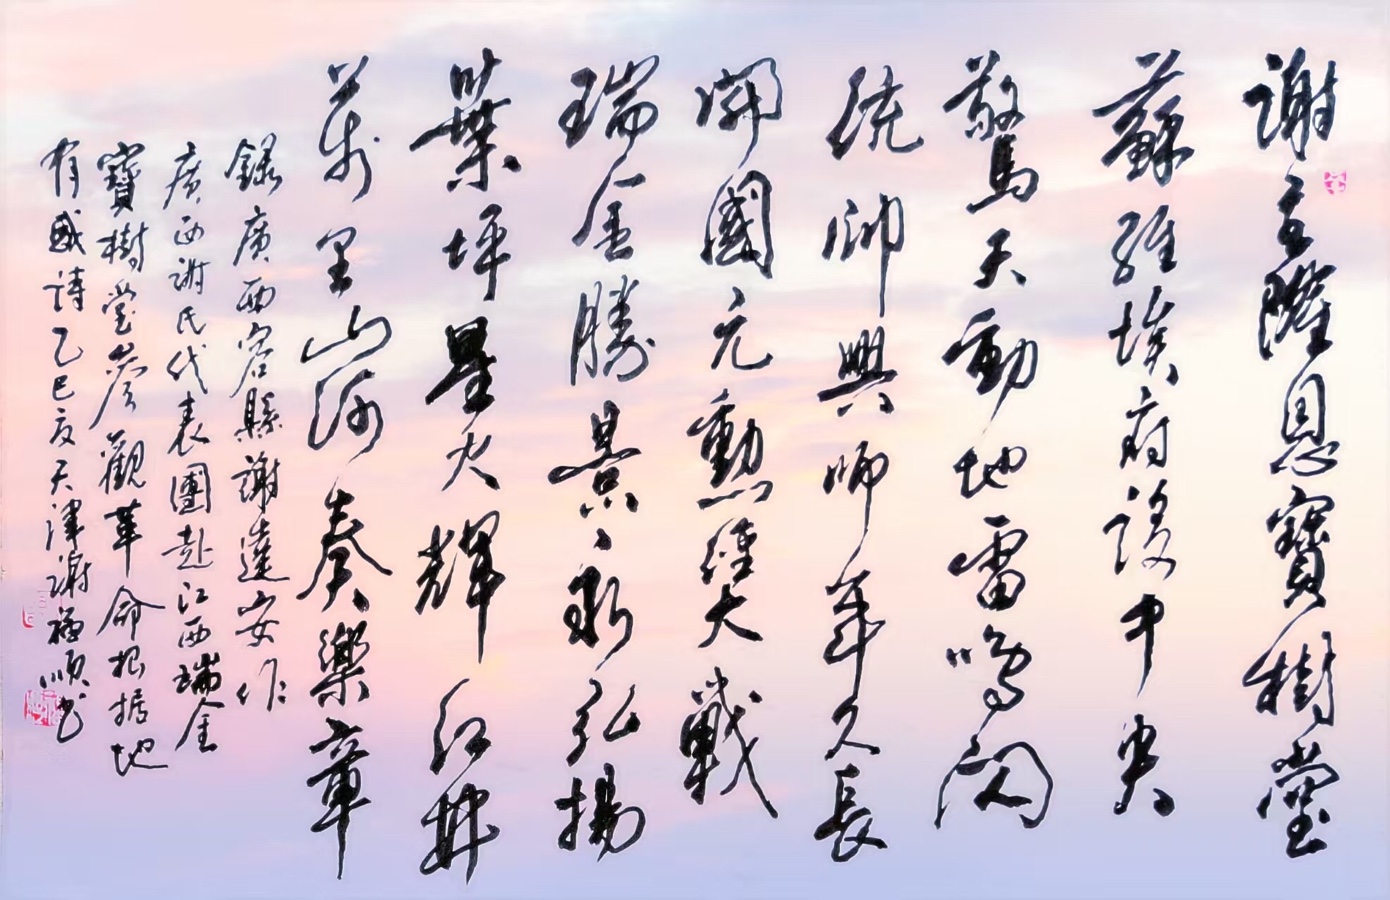 謝主隆恩寶樹堂
蘇維埃府設中央
驚天動地雷鳴閃
統帥興師年久長
開國元勳經大戰
瑞金勝景永弘揚
葉坪星火輝紅井
萬里山河奏樂章
錄廣西容縣謝達安作
廣西謝氏代表團赴江西瑞金
寶樹堂參觀革命根据地
有感詩乙巳夏天津謝福順书